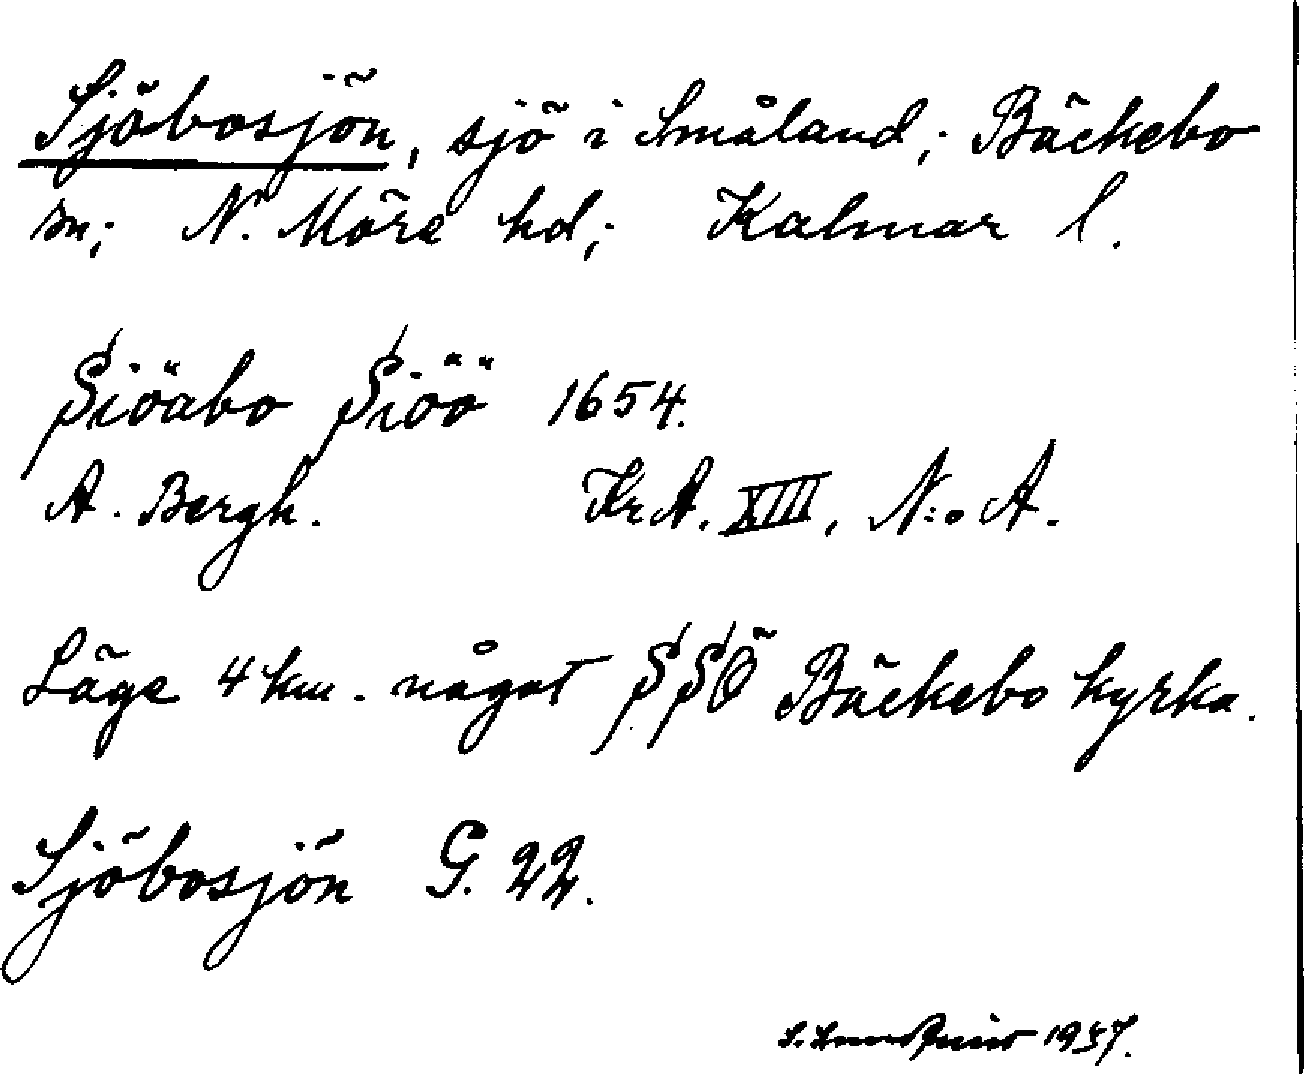 Sjöbosjön, sjö i Småland; Bäckebo
sn; N. Möre hd; Kalmar l.
Siöabo Siöö 1654.
A. Bergh. Kr A. XIII, N:o A.
Läge 4 km. något SSÖ Bäckebo kyrka.
Sjöbosjön G. 22.
S. 1937.